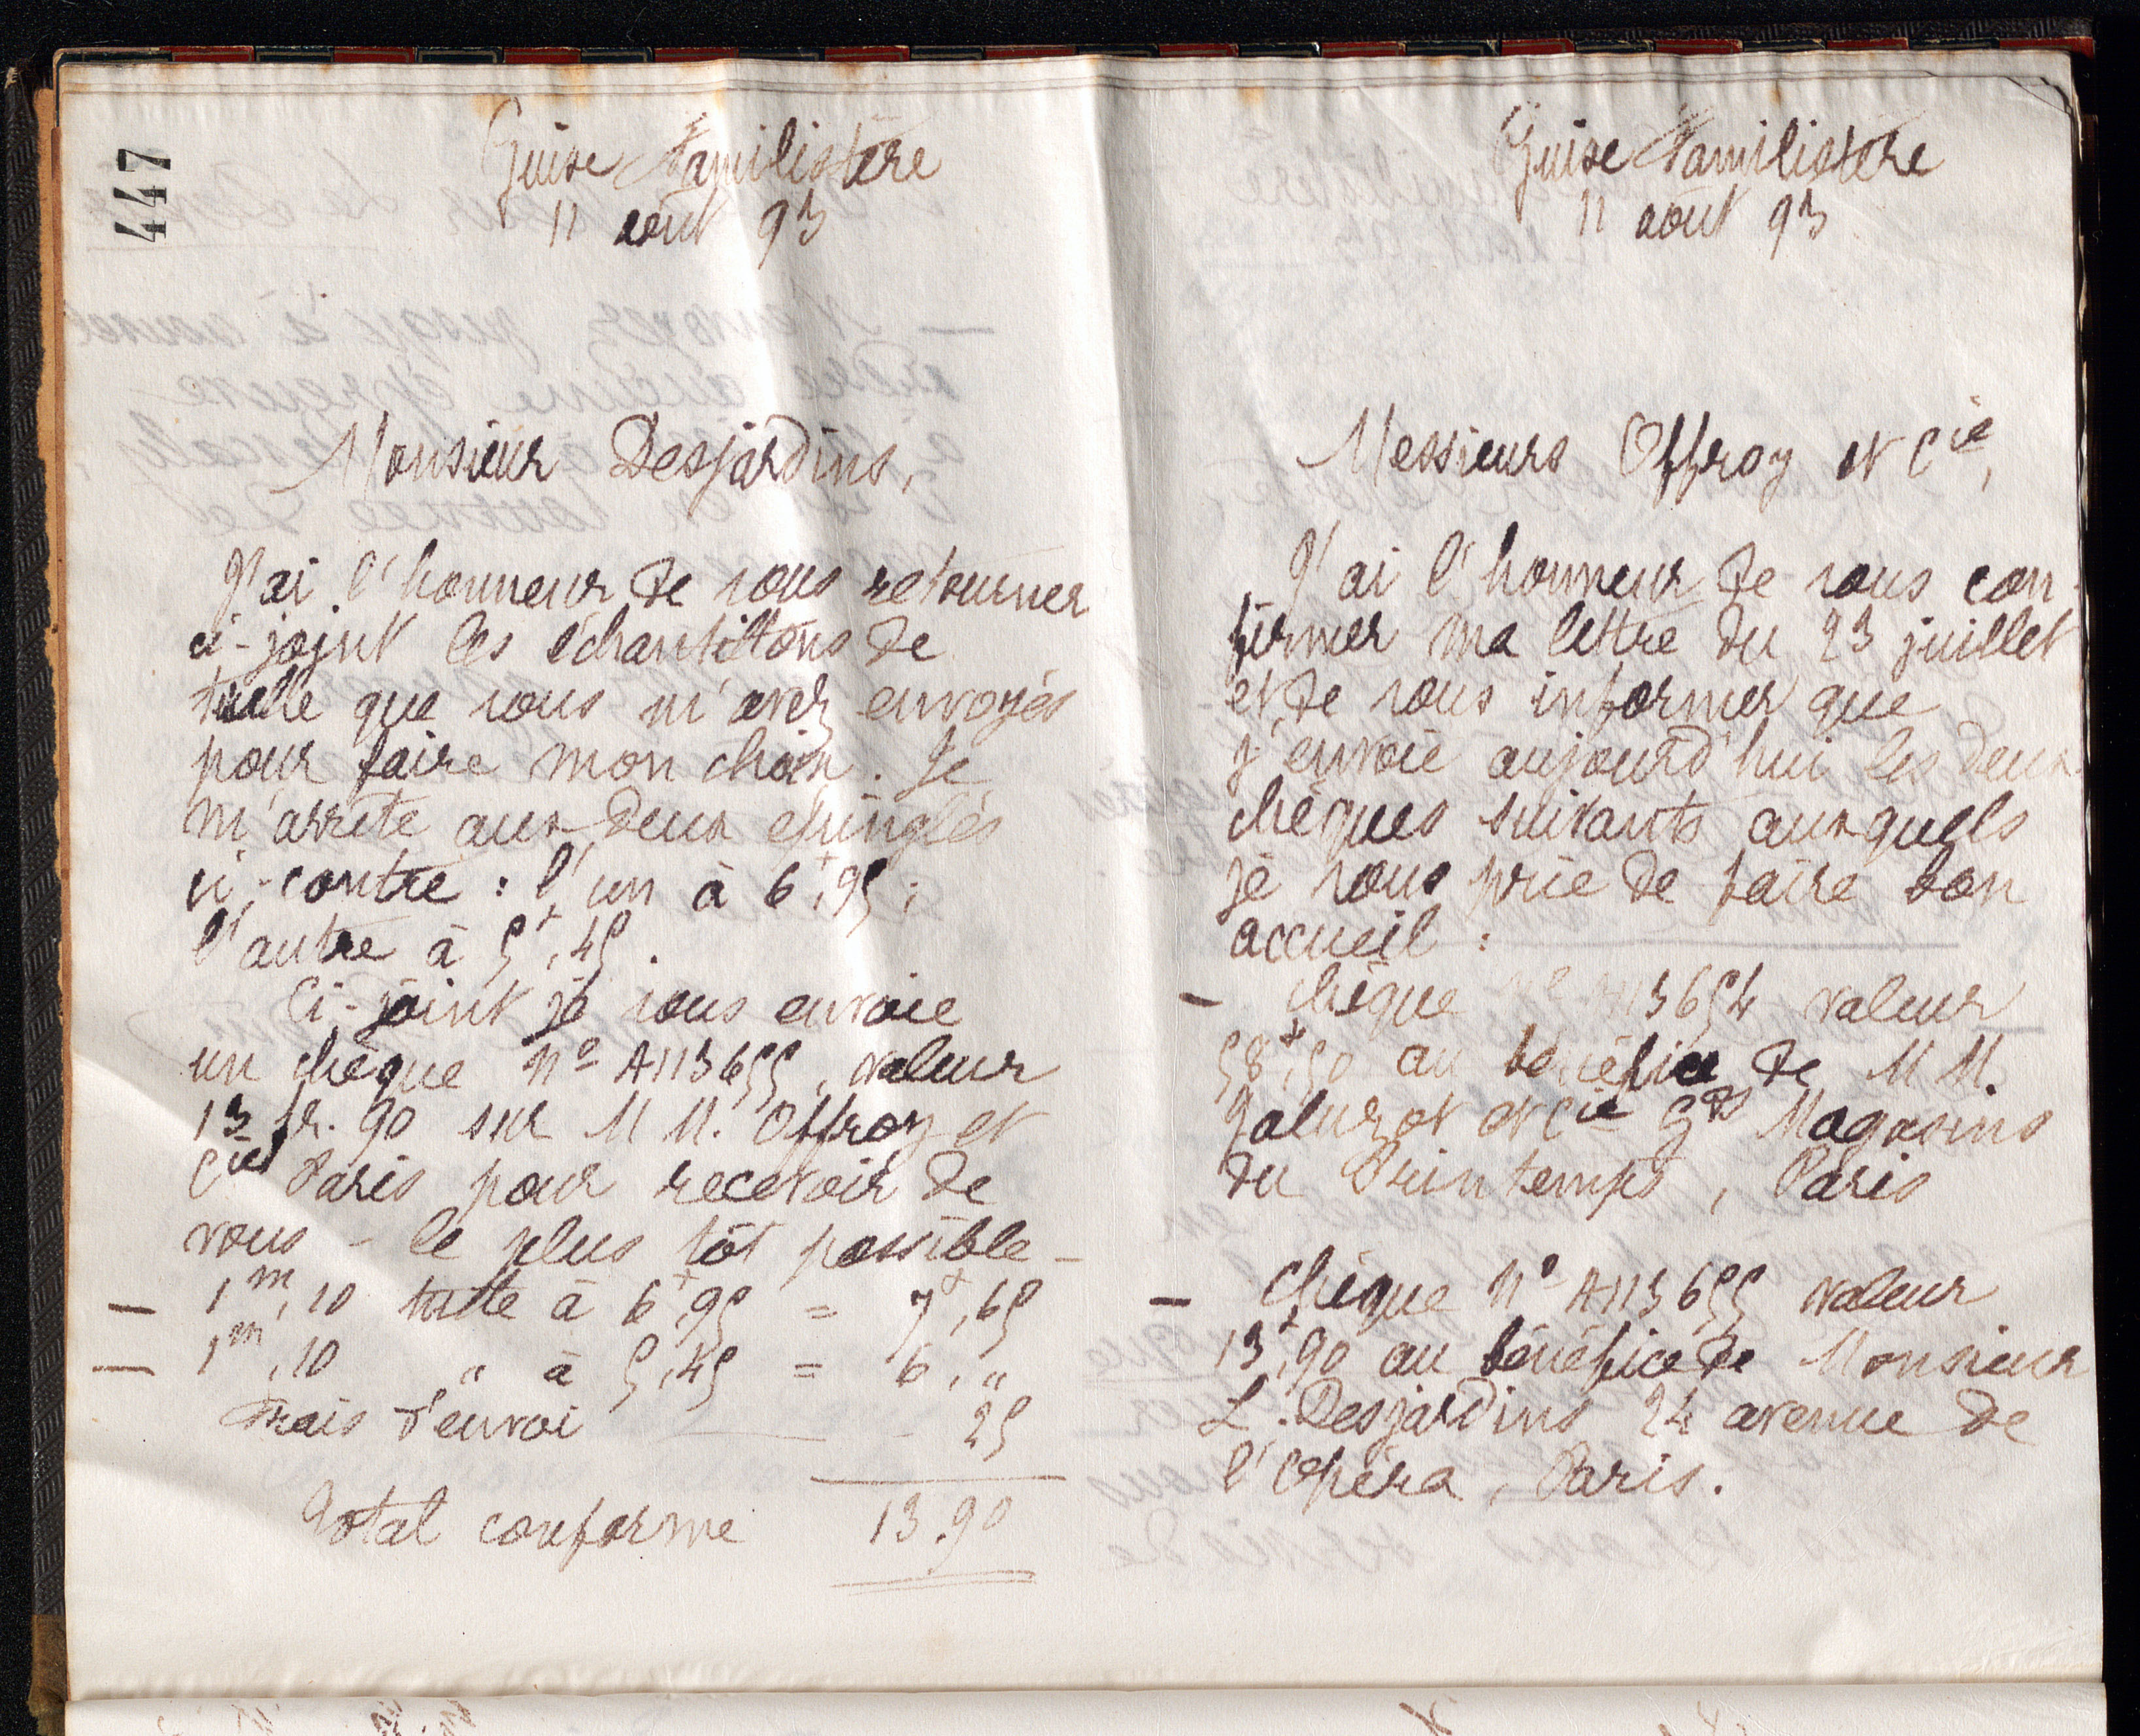 447
Guise Familistère
11 août 93
Monsieur Desjardins,
J'ai l'honneur de vous retourner
ci-joint les échantillons de
tulle que vous m'avez envoyés
pour faire mon choix. Je
m'arrête aux deux épinglés
ci-contre : l'un à 6f,95 ;
l'autre à 5f,45.
Ci-joint je vous envoie
un chèque No A113655, valeur
13 fr. 90 sur MM. Offroy et
Cie Paris pour recevoir de
vous - le plus tôt possible -
— 1m,10 tulle à 6f,95 = 7f,65
— 1m,10 " à 5,45 = 6,"
Frais d'envoi — - 25
Total conforme 13.90
Guise Familistère
11 août 93
Messieurs Offroy et Cie,
J'ai l'honneur de vous con-
firmer ma lettre du 23 juillet
et de vous informer que
j'envoie aujourd'hui les deux
chèques suivants auxquels
je vous prie de faire bon
accueil :
— Chèque No A113654 valeur
58f,50 au bénéfice de MM.
Jaluzot et Cie Gds Magasins
du Printemps, Paris
— Chèque No A113655 valeur
13f,90 au bénéfice de Monsieur
L. Desjardins 24 avenue de
l'Opéra, Paris.